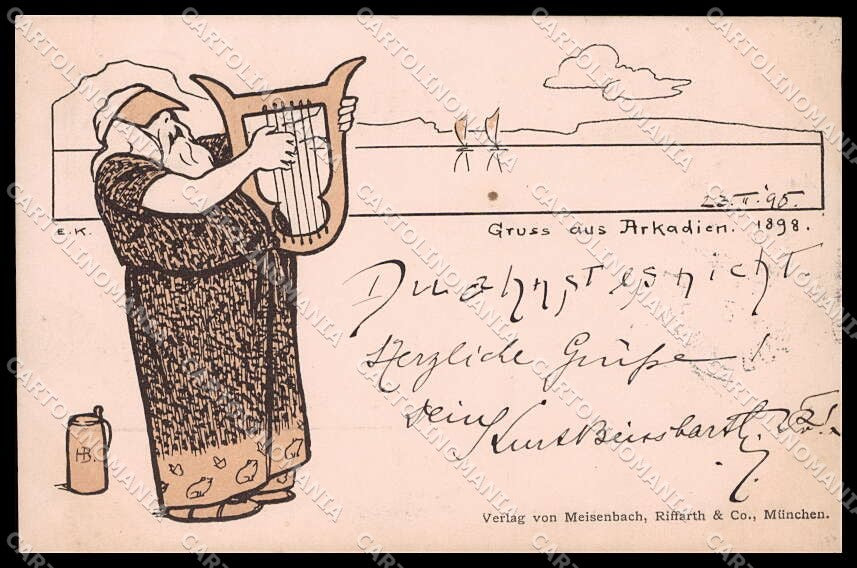 23.II.'98.
E.K.
Gruss aus Arkadien. 1898.
Du ahnst es nicht.
Herzliche Grüße!
Dein Kurt
HB.
Verlag von Meisenbach, Riffarth & Co., München.
CARTOLINOMANIA